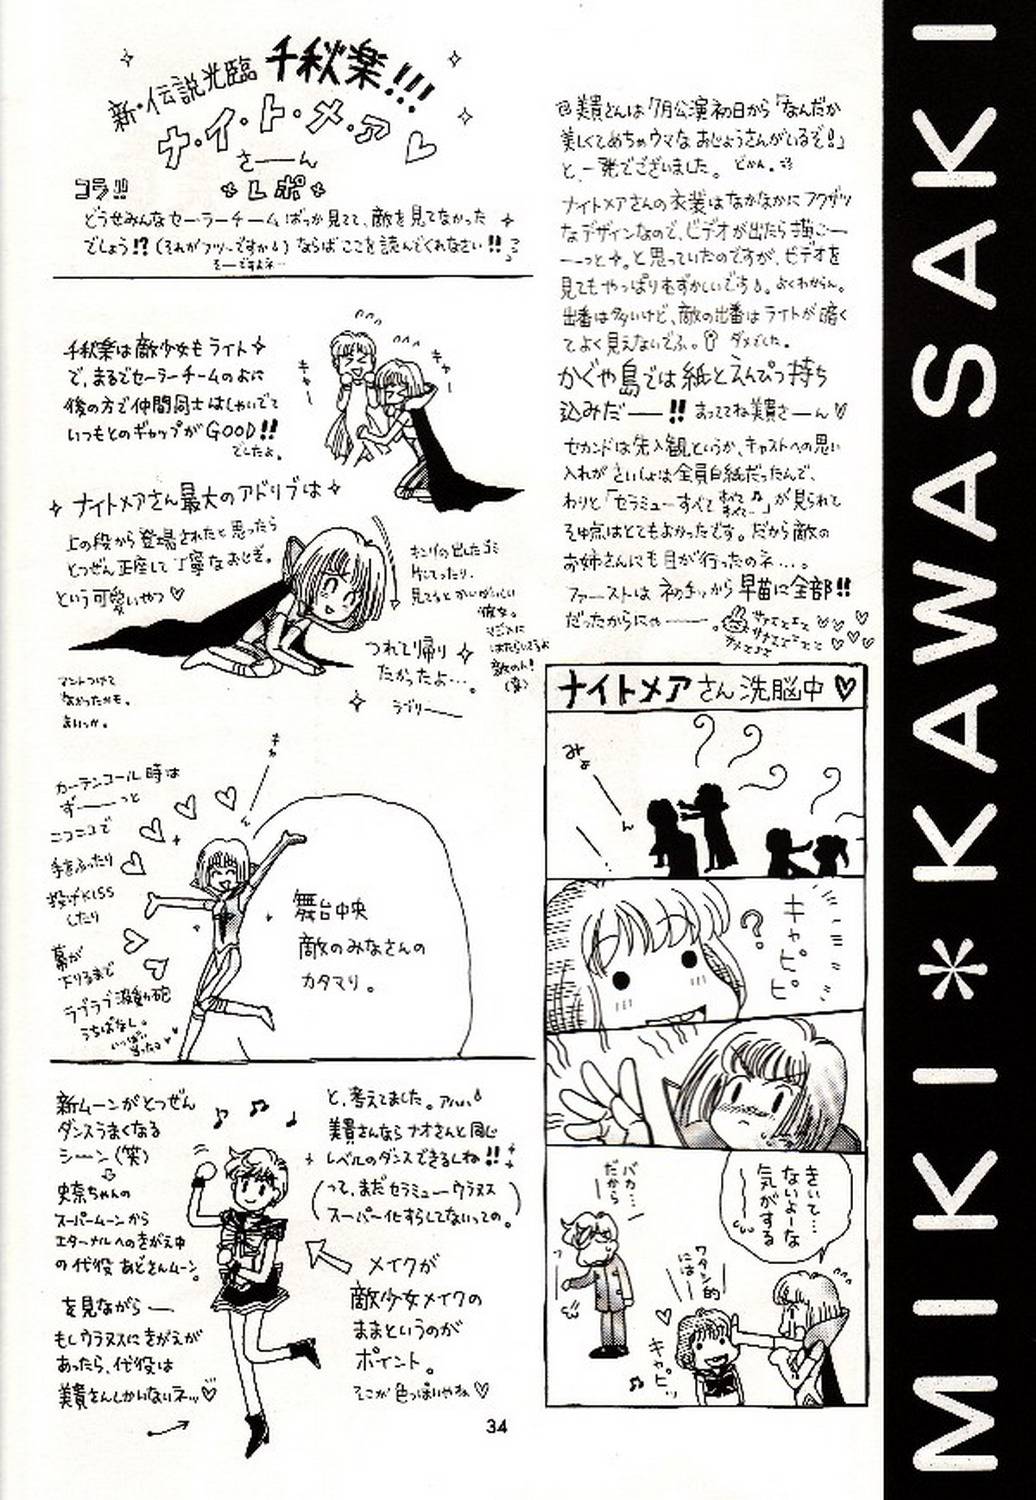 新・伝説光臨 千秋楽!!!
ナ・イ・ト・メ・ア♡
さーん
レポ
コラ!!
どうせみんなセーラーチームばっか見てて、敵を見てなかった
でしょう!?(それがフツーですか)ならばここを読んでくれなさい!!
そーですよネ…
千秋楽は敵少女もライト
で、まるでセーラーチームのように
後の方で仲間同士はしゃいでて
いつもとのギャップがGOOD!!
でしたよ。
キャー
キャー
ナイトメアさん最大のアドリブは
上の段から登場されたと思ったら
とつぜん正座して丁寧なおじぎ。
という可愛いやつ♡
キングの出したゴミ
片してったり、
見てるとかいがいしい
彼女。
マジメに
はたらいてるよ
敵の人!
(笑)
つれて帰り
たかったよ…。
ラブリー
マントつけて
なかったかも。
まいっか。
キャ
カーテンコール時は
ずーーっと
ニコニコで
手をふったり
投げKISS
したり
幕が
下りるまで
ラブラブ波動砲
うちぱなし。
舞台中央
敵のみなさんの
カタマリ。
新ムーンがとつぜん
ダンスうまくなる
シーン(笑)
史奈ちゃんの
スーパームーンから
エターナルへのきがえ中
の代役 あどさんムーン。
を見ながらー
もしウラヌスにきがえが
あったら、代役は
美貴さんしかいないネッ♡
と、考えてました。
美貴さんならナオさんと同じ
レベルのダンスできるしね!!
(って、まだセラミューウラヌス
スーパー化すらしてないっての。)
メイクが
敵少女メイクの
ままというのが
ポイント。
そこが色っぽいやね♡
美貴さんは7月公演初日から「なんだか
美しくてめちゃウマなおじょうさんがいるぞ!」
と、一発でございました。どかん。
ナイトメアさんの衣装はなかなかにフクザツ
なデザインなので、ビデオが出たら描こー
ーーっと。と思っていたのですが、ビデオを
見てもやっぱりむずかしいです。よくわからん。
出番は多いけど、敵の出番はライトが暗く
てよく見えないでふ。ダメでした。
かぐや島では紙とえんぴつ持ち
込みだー!!まっててね美貴さーん♡
セカンドは先入観というか、キャストへの思い
入れがさいしょは全員白紙だったんで、
わりと「セラミューすべて」が見られて
その点はとてもよかったです。だから敵の
お姉さんにも目が行ったのネ…。
ファーストは初めっから早苗に全部!!
だったからにゃー。
サナエサナエ
サナエサナエ
サナエ
ナイトメアさん洗脳中♡
みょ
ん
キャピピピ
?
きいて…
ないよーな
気がする
バカ…
だから
ワタシ的
には
キャピッ
34
MIKI*KAWASAKI